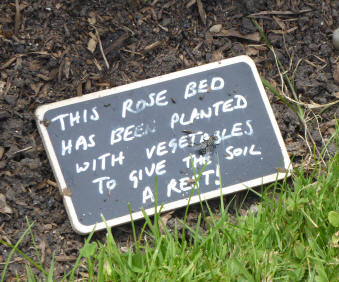 THIS ROSE BED
HAS BEEN PLANTED
WITH VEGETABLES
TO GIVE THE SOIL
A REST!